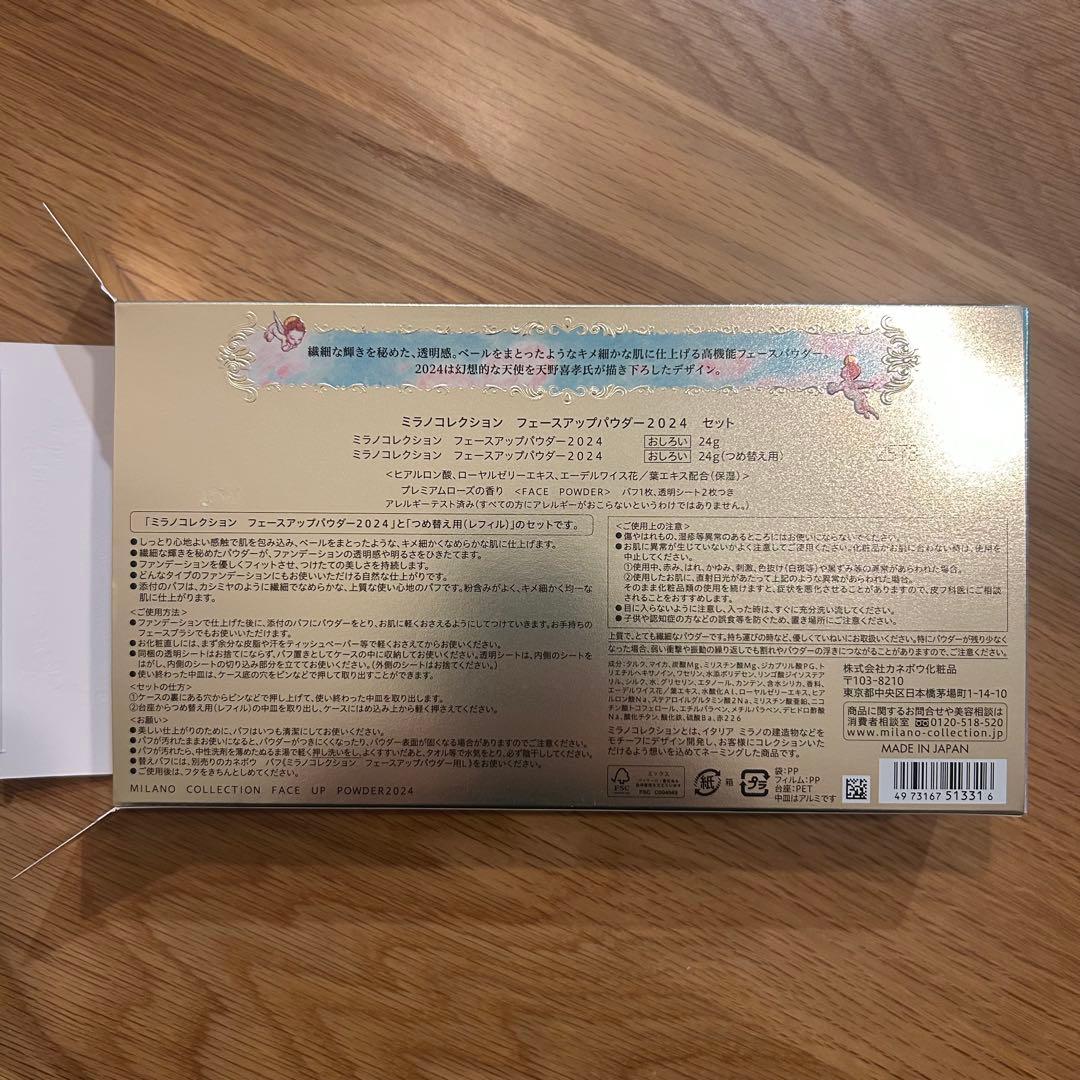 繊細な輝きを秘めた、透明感。ベールをまとったようなキメ細かな肌に仕上げる高機能フェースパウダー。
2024は幻想的な天使を天野喜孝氏が描き下ろしたデザイン。
ミラノコレクション　フェースアップパウダー2024　セット
ミラノコレクション　フェースアップパウダー2024　おしろい　24g
ミラノコレクション　フェースアップパウダー2024　おしろい　24g(つめ替え用)
<ヒアルロン酸、ローヤルゼリーエキス、エーデルワイス花/葉エキス配合(保湿)>
プレミアムローズの香り　<FACE POWDER>　パフ1枚、透明シート2枚つき
アレルギーテスト済み(すべての方にアレルギーがおこらないというわけではありません。)
「ミラノコレクション　フェースアップパウダー2024」と「つめ替え用(レフィル)」のセットです。
●しっとり心地よい感触で肌を包み込み、ベールをまとったような、キメ細かくなめらかな肌に仕上げます。
●繊細な輝きを秘めたパウダーが、ファンデーションの透明感や明るさをひきたてます。
●ファンデーションを優しくフィットさせ、つけたての美しさを持続します。
●どんなタイプのファンデーションにもお使いいただける自然な仕上がりです。
●添付のパフは、カシミヤのように繊細でなめらかな、上質な使い心地のパフです。粉含みがよく、キメ細かく均一な
肌に仕上がります。
<ご使用方法>
●ファンデーションで仕上げた後に、添付のパフにパウダーをとり、お肌に軽くおさえるようにしてつけていきます。お手持ちの
フェースブラシでもお使いいただけます。
●お化粧直しには、まず余分な皮脂や汗をティッシュペーパー等で軽くおさえてからお使いください。
●同梱の透明シートはお捨てにならず、パフ置きとしてケースの中に収納してお使いください。透明シートは、内側のシートを
はがし、内側のシートの切り込み部分を立ててお使いください。(外側のシートはお捨てください。)
●使い終わった中皿は、ケース底の穴をピンなどで押して取り出すことができます。
<セットの仕方>
①ケースの裏にある穴からピンなどで押し上げて、使い終わった中皿を取り出します。
②台座からつめ替え用(レフィル)の中皿を取り出し、ケースにはめ込み上から軽く押さえてください。
<お願い>
●美しい仕上がりのために、パフはいつも清潔にしてお使いください。
●パフが汚れたままお使いになると、パウダーがつきにくくなったり、パウダー表面が固くなる場合がありますのでご注意ください。
●パフが汚れたら、中性洗剤を薄めたぬるま湯で軽く押し洗いをし、よくすすいだあと、タオル等で水気をとり、必ず陰干ししてください。
●替えパフには、別売りのカネボウ　パフ(ミラノコレクション　フェースアップパウダー用L)をお使いください。
●ご使用後は、フタをきちんとしめてください。
MILANO COLLECTION FACE UP POWDER2024
<ご使用上の注意>
●傷やはれもの、湿疹等異常のあるところにはお使いにならないでください。
●お肌に異常が生じていないかよく注意してご使用ください。化粧品がお肌に合わない時は、使用を
中止してください。
①使用中、赤み、はれ、かゆみ、刺激、色抜け(白斑等)や黒ずみ等の異常があらわれた場合。
②使用したお肌に、直射日光があたって上記のような異常があらわれた場合。
そのまま化粧品類の使用を続けますと、症状を悪化させることがありますので、皮フ科医にご相談
されることをおすすめします。
●目に入らないように注意し、入った時は、すぐに充分洗い流してください。
●子供や認知症の方などの誤食等を防ぐため、置き場所にご注意ください。
上質で、とても繊細なパウダーです。持ち運びの時など、優しくていねいにお取扱いください。特にパウダーが残り少なく
なった場合、弱い衝撃や振動の繰り返しでも割れやパウダーの浮きにつながることがありますので、ご注意ください。
成分:タルク、マイカ、炭酸Mg、ミリスチン酸Mg、ジカプリル酸PG、ト
リエチルヘキサノイン、ワセリン、水添ポリデセン、リンゴ酸ジイソステア
リル、シルク、水、グリセリン、エタノール、カンテン、含水シリカ、香料、
エーデルワイス花/葉エキス、水酸化Al、ローヤルゼリーエキス、ヒア
ルロン酸Na、ステアロイルグルタミン酸2Na、ミリスチン酸亜鉛、ニコ
チン酸トコフェロール、エチルパラベン、メチルパラベン、デヒドロ酢酸
Na、酸化チタン、酸化鉄、硫酸Ba、赤226
ミラノコレクションとは、イタリア ミラノの建造物などを
モチーフにデザイン開発し、お客様にコレクションいた
だけるよう想いを込めてネーミングした商品です。
株式会社カネボウ化粧品
〒103-8210
東京都中央区日本橋茅場町1-14-10
商品に関するお問合せや美容相談は
消費者相談室 0120-518-520
www.milano-collection.jp
MADE IN JAPAN
FSC
ミックス
FSC C004049
紙 箱
プラ
袋:PP
フィルム:PP
台座:PET
中皿はアルミです
4 973167 513316